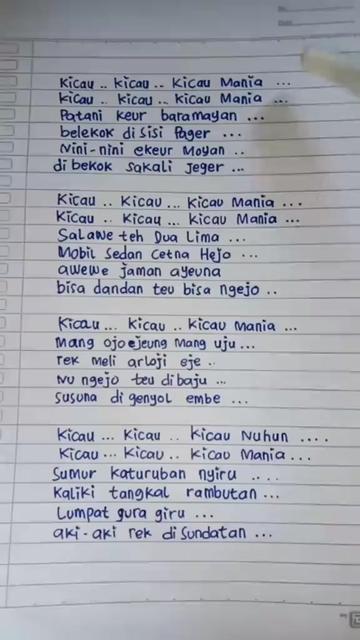 Kicau .. kicau .. Kicau Mania ...
Kicau .. kicau ... Kicau Mania ...
Patani keur baramayan ...
belekok di sisi Pager ...
Nini-nini ekeur Moyan ..
di bekok sakali Jeger ...
Kicau .. Kicau ... Kicau Mania ...
Kicau .. Kicau ... Kicau Mania ...
Salawe teh Dua Lima ...
Mobil sedan Cetna Hejo ...
awewe jaman ayeuna
bisa dandan teu bisa ngejo ..
Kicau ... kicau .. kicau Mania ...
Mang ojo ejeung Mang uju ...
rek meli arloji eje ..
nu ngejo teu di baju ...
susuna di genyol embe ...
Kicau ... Kicau .. Kicau Nuhun ....
Kicau ... Kicau .. Kicau Mania ...
Sumur katuruban nyiru ....
Kaliki tangkal rambutan ...
Lumpat gura giru ...
aki-aki rek di Sundatan ...